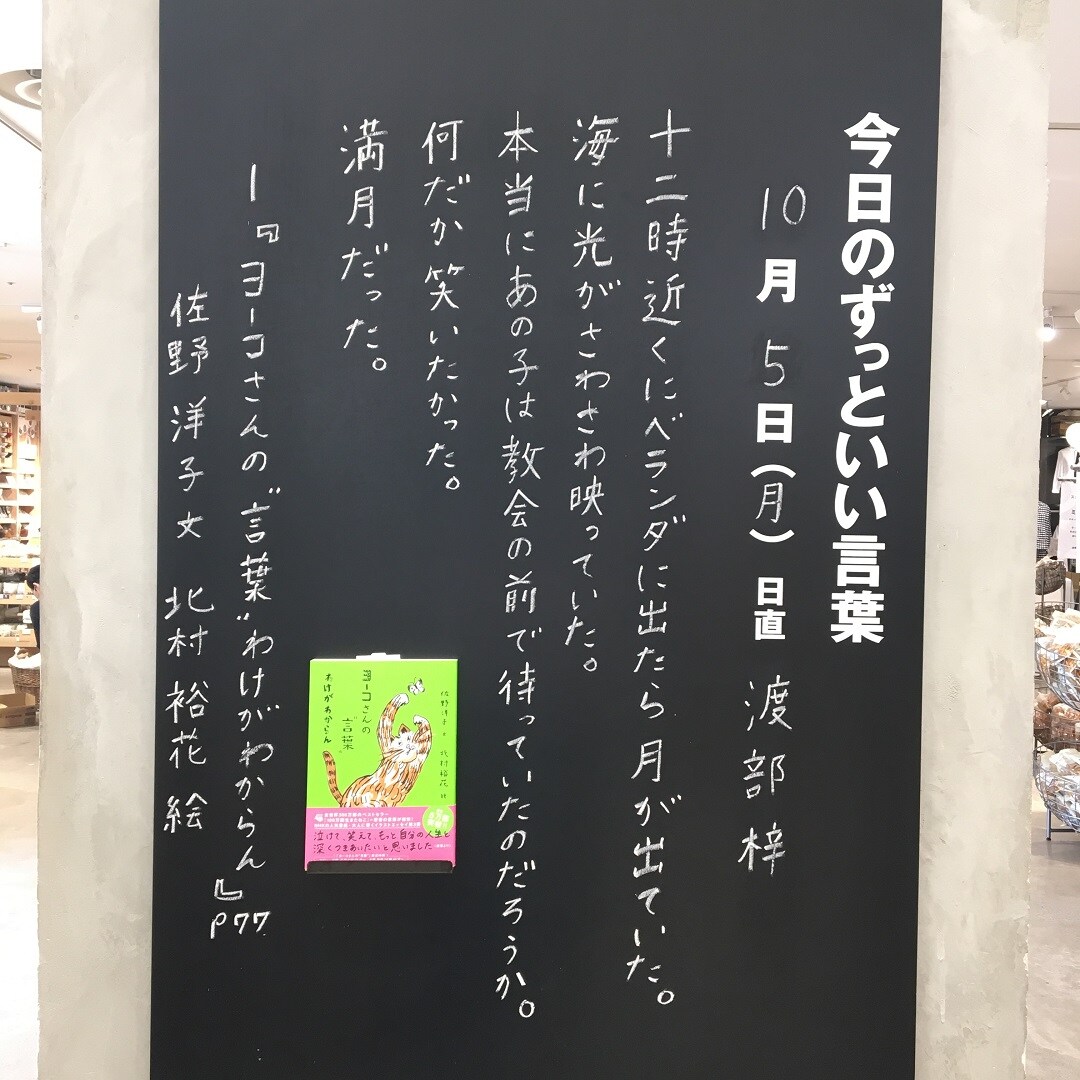 今日のずっといい言葉
10月5日(月) 日直 渡部 梓
十二時近くにベランダに出たら月が出ていた。
海に光がさわさわ映っていた。
本当にあの子は教会の前で待っていたのだろうか。
何だか笑いたかった。
満月だった。
―『ヨーコさんの“言葉”わけがわからん』
P77
佐野洋子 文 北村裕花 絵
佐野洋子 文 北村裕花 絵
ヨーコさんの“言葉”
わけがわからん
泣けて、笑えて、もっと自分の人生と
深くつきあいたいと思いました